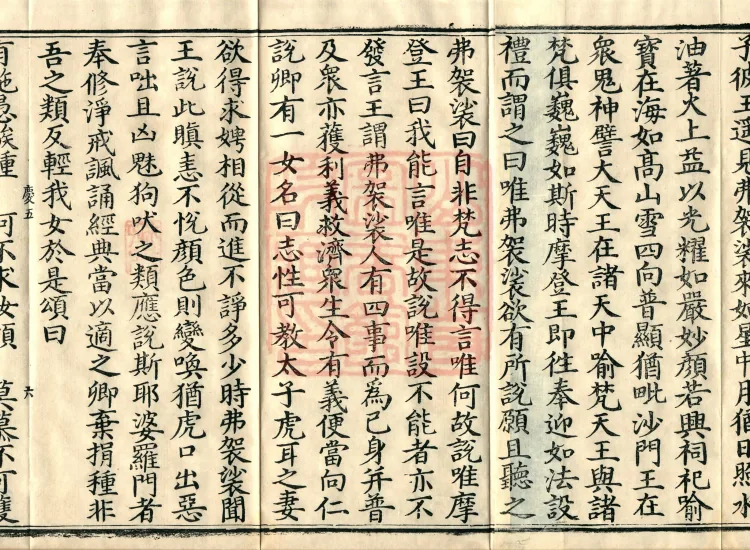 子彼王遥見弗袈裟來如星中月猶日照水
油著火上益以光耀如嚴妙顔若興祠祀喻
寶在海如髙山雪四向普顯猶毗沙門王在
衆鬼神譬大天王在諸天中喻梵天王與諸
梵俱巍巍如斯時摩登王即往奉迎如法設
禮而謂之曰唯弗袈裟欲有所說願且聽之
弗袈裟曰自非梵志不得言唯何故說唯摩
登王曰我能言唯是故說唯設不能者亦不
發言王謂弗袈裟人有四事而為己身并普
及衆亦獲利義救濟衆生令有義便當向仁
說卿有一女名曰志性可教太子虎耳之妻
欲得求娉相從而進不諍多少時弗袈裟聞
王說此瞋恚不悅顔色則變喚猶虎口出惡
言咄且凶魅狗吠之類應說斯耶婆羅門者
奉修淨戒諷誦經典當以適之卿棄捐種非
吾之類反輕我女於是頌曰
慶五 六
何不求女類 莫慕不可獲